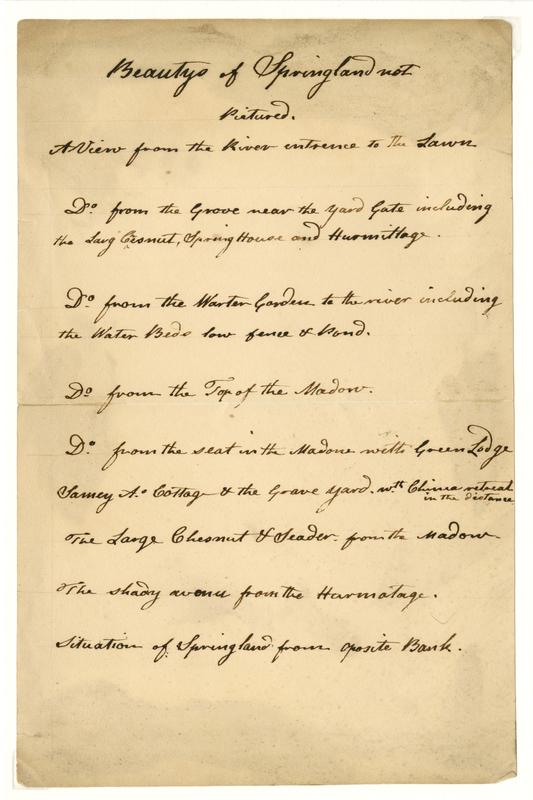 Beautys of Springland not
Pictured.
A View from the River entrence to the Lawn
Do. from the Grove near the yard Gate including
the Larg Cesnut, Spring House and Hurmittage.
Do. from the Warter Garden to the river including
the Water Beds low fence & Pond.
Do. from the Top of the Madow.
Do. from the seat in the Madow with Green Lodge
Cottage & the Grave yard. wth China retreat
in the distance
The Large Chesnut & Seader from the Madow
The shady avenu from the Harmatage.
Situation of Springland from oposite Bank.